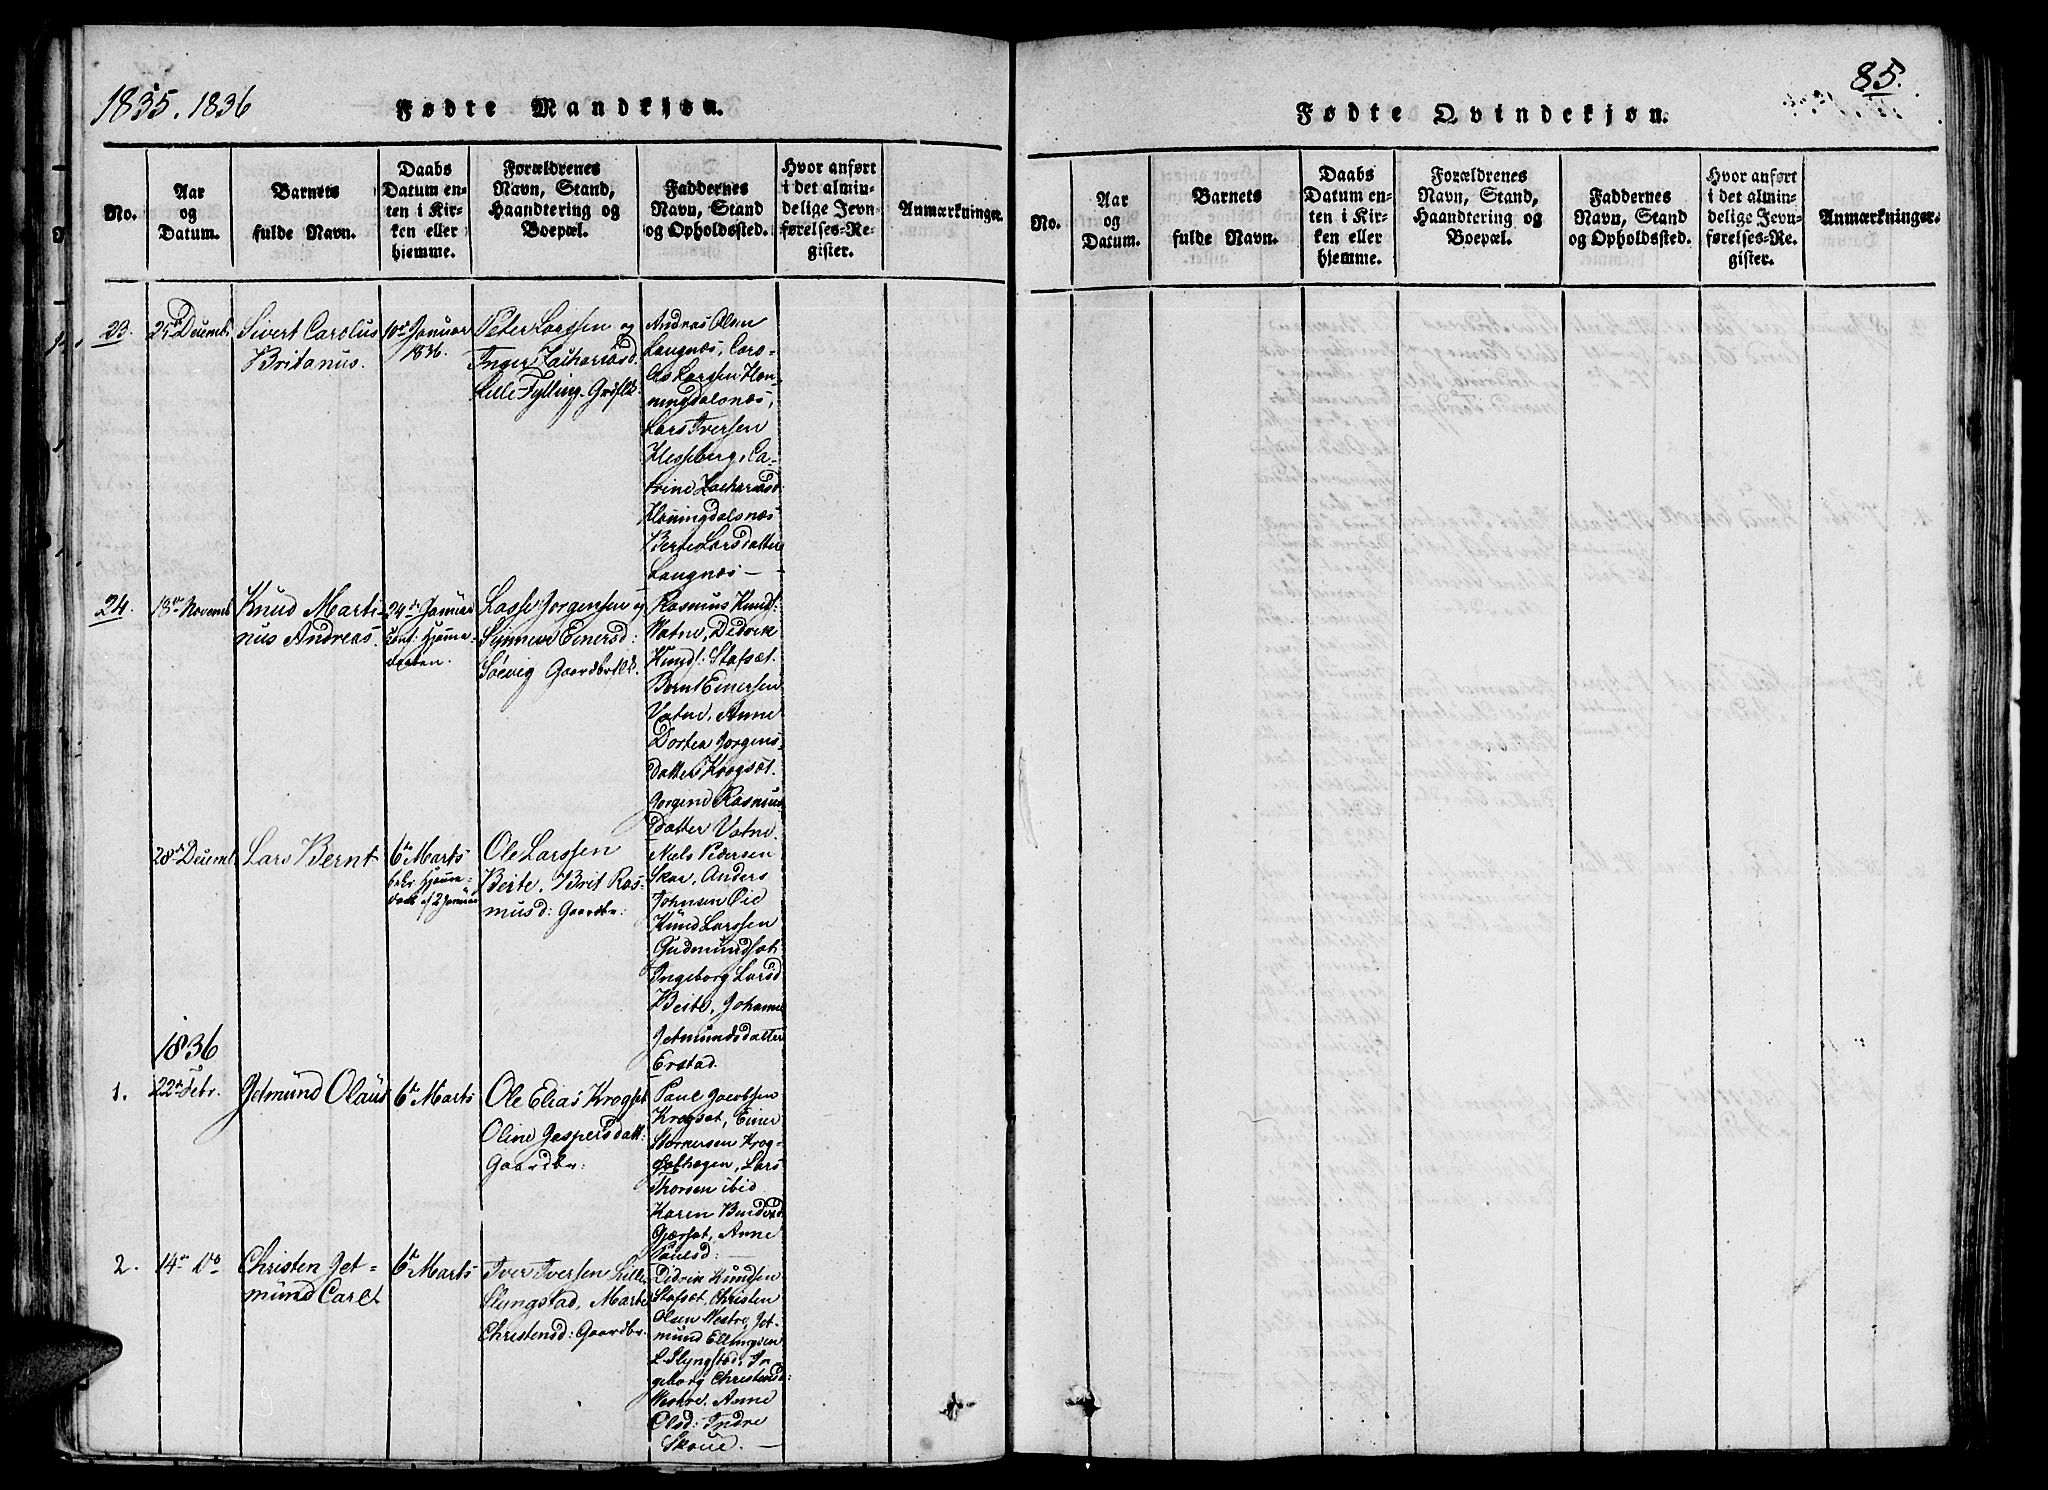 1835. 1836
Fødte Mandkjøn.
No.
Aar
og
Datum.
Barnets
fulde Navn.
Daabs
Datum en-
ten i Kir-
ken eller
hjemme.
Forældrenes
Navn, Stand,
Haandtering og
Boepæl.
Faddernes
Navn, Stand
og Opholdssted.
Hvor anført
i det almin-
delige Jevn-
førelses-Re-
gister.
Anmærkninger.
23.
25de Decembr
Sivert Carolus
Britanus.
10de Januar
1836.
Peter Larssen og
Inger Zachariasd.
Lille Fylling
Andreas Olsen
Langnæs, Caro-
lus Larssen Hon-
ningdalsnæs,
Lars Iversen
Hesseberg, Ca-
trine Zachariasd.
Honningdalsnæs
Berte Larsdatter
Langnæs —
24.
18de Novemb
Knud Marti-
nus Andreas.
24de Januar
Conf: Hjemme-
daaben.
Lasse Jørgensen og
Synneve Einersd:
Søevig Gaardbrflk.
Rasmus Knuds:
Vatne, Didrik
Knuds: Stafsæt.
Bernt Einersen
Vatne, Anne
Dortea Jørgens-
datter Krogsæt.
Jørgine Rasmus
datter Vatne.
28de Decembr
Lars Bernt
6te Marts
bekr Hjemme-
daab af 2 Januar
Ole Larssen
Beite, Brit Ras-
musd: Gaardbr:
Niels Pedersen
Skar, Anders
Johnsen Øie
Knud Larssen
Gudmundsæt
Ingeborg Larsd
Beite, Johanne
Jetmundsdatter
Erstad.
1836
1.
22de Febr.
Jetmund Olaus
6te Marts
Ole Elias Krogset
Oline Jaspersdatt:
Gaardbr:
Paul Jacobsen
Krogsæt, Einer
Størkersen Krog-
sæthagen, Lars
Thorsen ibid
Karen
Gjærsæt, Anne
Paulsd: —
2.
14de Do
Christen Jet-
mund Carl
6te Marts
Iver Iversen Lille
Slyngstad, Marte
Christensd: Gaardbr.
Didrik Knudsen
Stafsæt, Christen
Olsen Vestre, Jet-
mund Ellingsen
L. Slyngstad, In-
geborg Christensd:
Vestre, Anne
Olsd: Indre
Skoue. —
85.
Fødte Qvindekjøn.
No.
Aar
og
Datum.
Barnets
fulde Navn.
Daabs
Datum en-
ten i Kir-
ken eller
hjemme.
Forældrenes
Navn, Stand,
Haandtering og
Boepæl.
Faddernes
Navn, Stand
og Opholdssted.
Hvor anført
i det almin-
delige Jevn-
førelses-Re-
gister.
Anmærkninger.